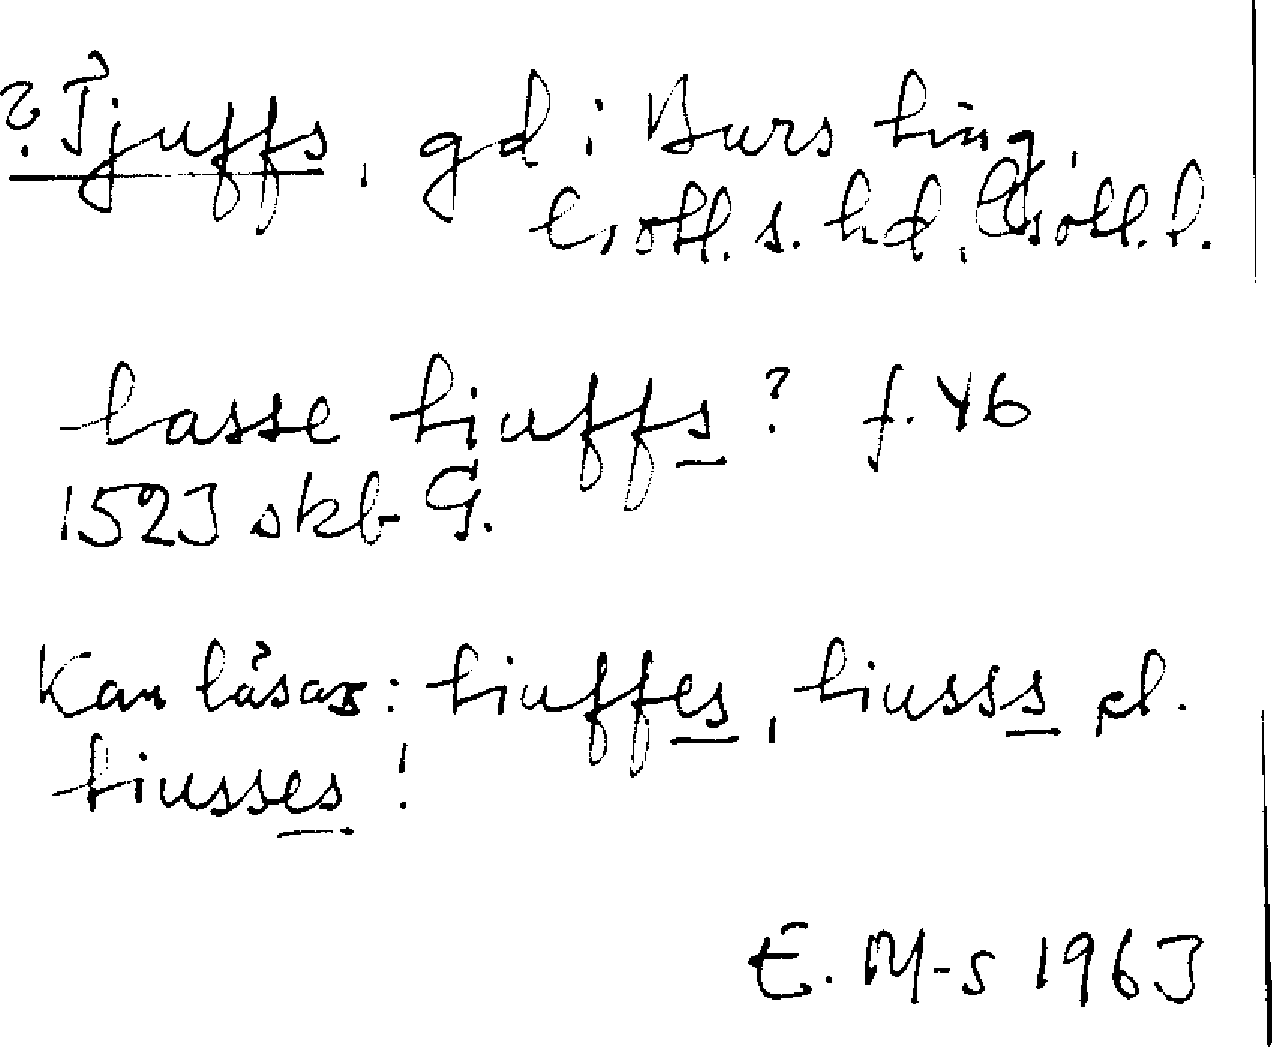 ? Tjuffs, gd i Burs ting,
Gotl. s. hd, Gotl. l.
lasse tiuffs? f. 46
1523 skb G.
Kan läsas: tiuffes, tiusss el.
tiusses!
E. M-s 1963